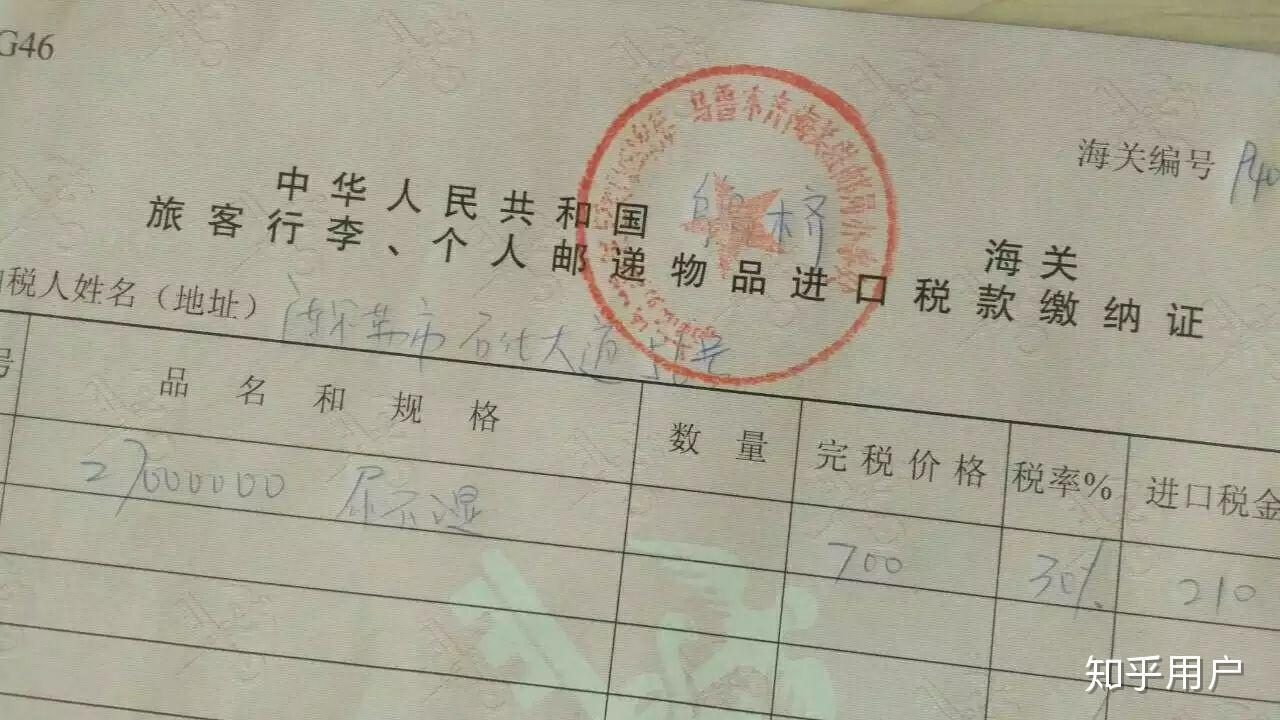 G46
海关编号
中华人民共和国 海关
旅客行李、个人邮递物品进口税款缴纳证
税人姓名（地址） 市石化大道 号
号 品名和规格 数量 完税价格 税率% 进口税金
27000000 尿不湿 700 30% 210
乌鲁木齐海关驻邮局办事处
知乎用户